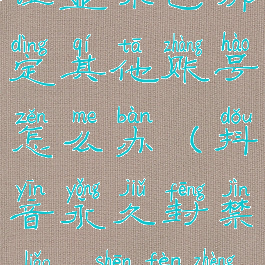 dìng qí tā zhàng hào
定其他账号
zěn me bàn dǒu
怎么办（抖
yīn yǒng jiǔ fēng jìn
音永久封禁
shēn fèn zhèng